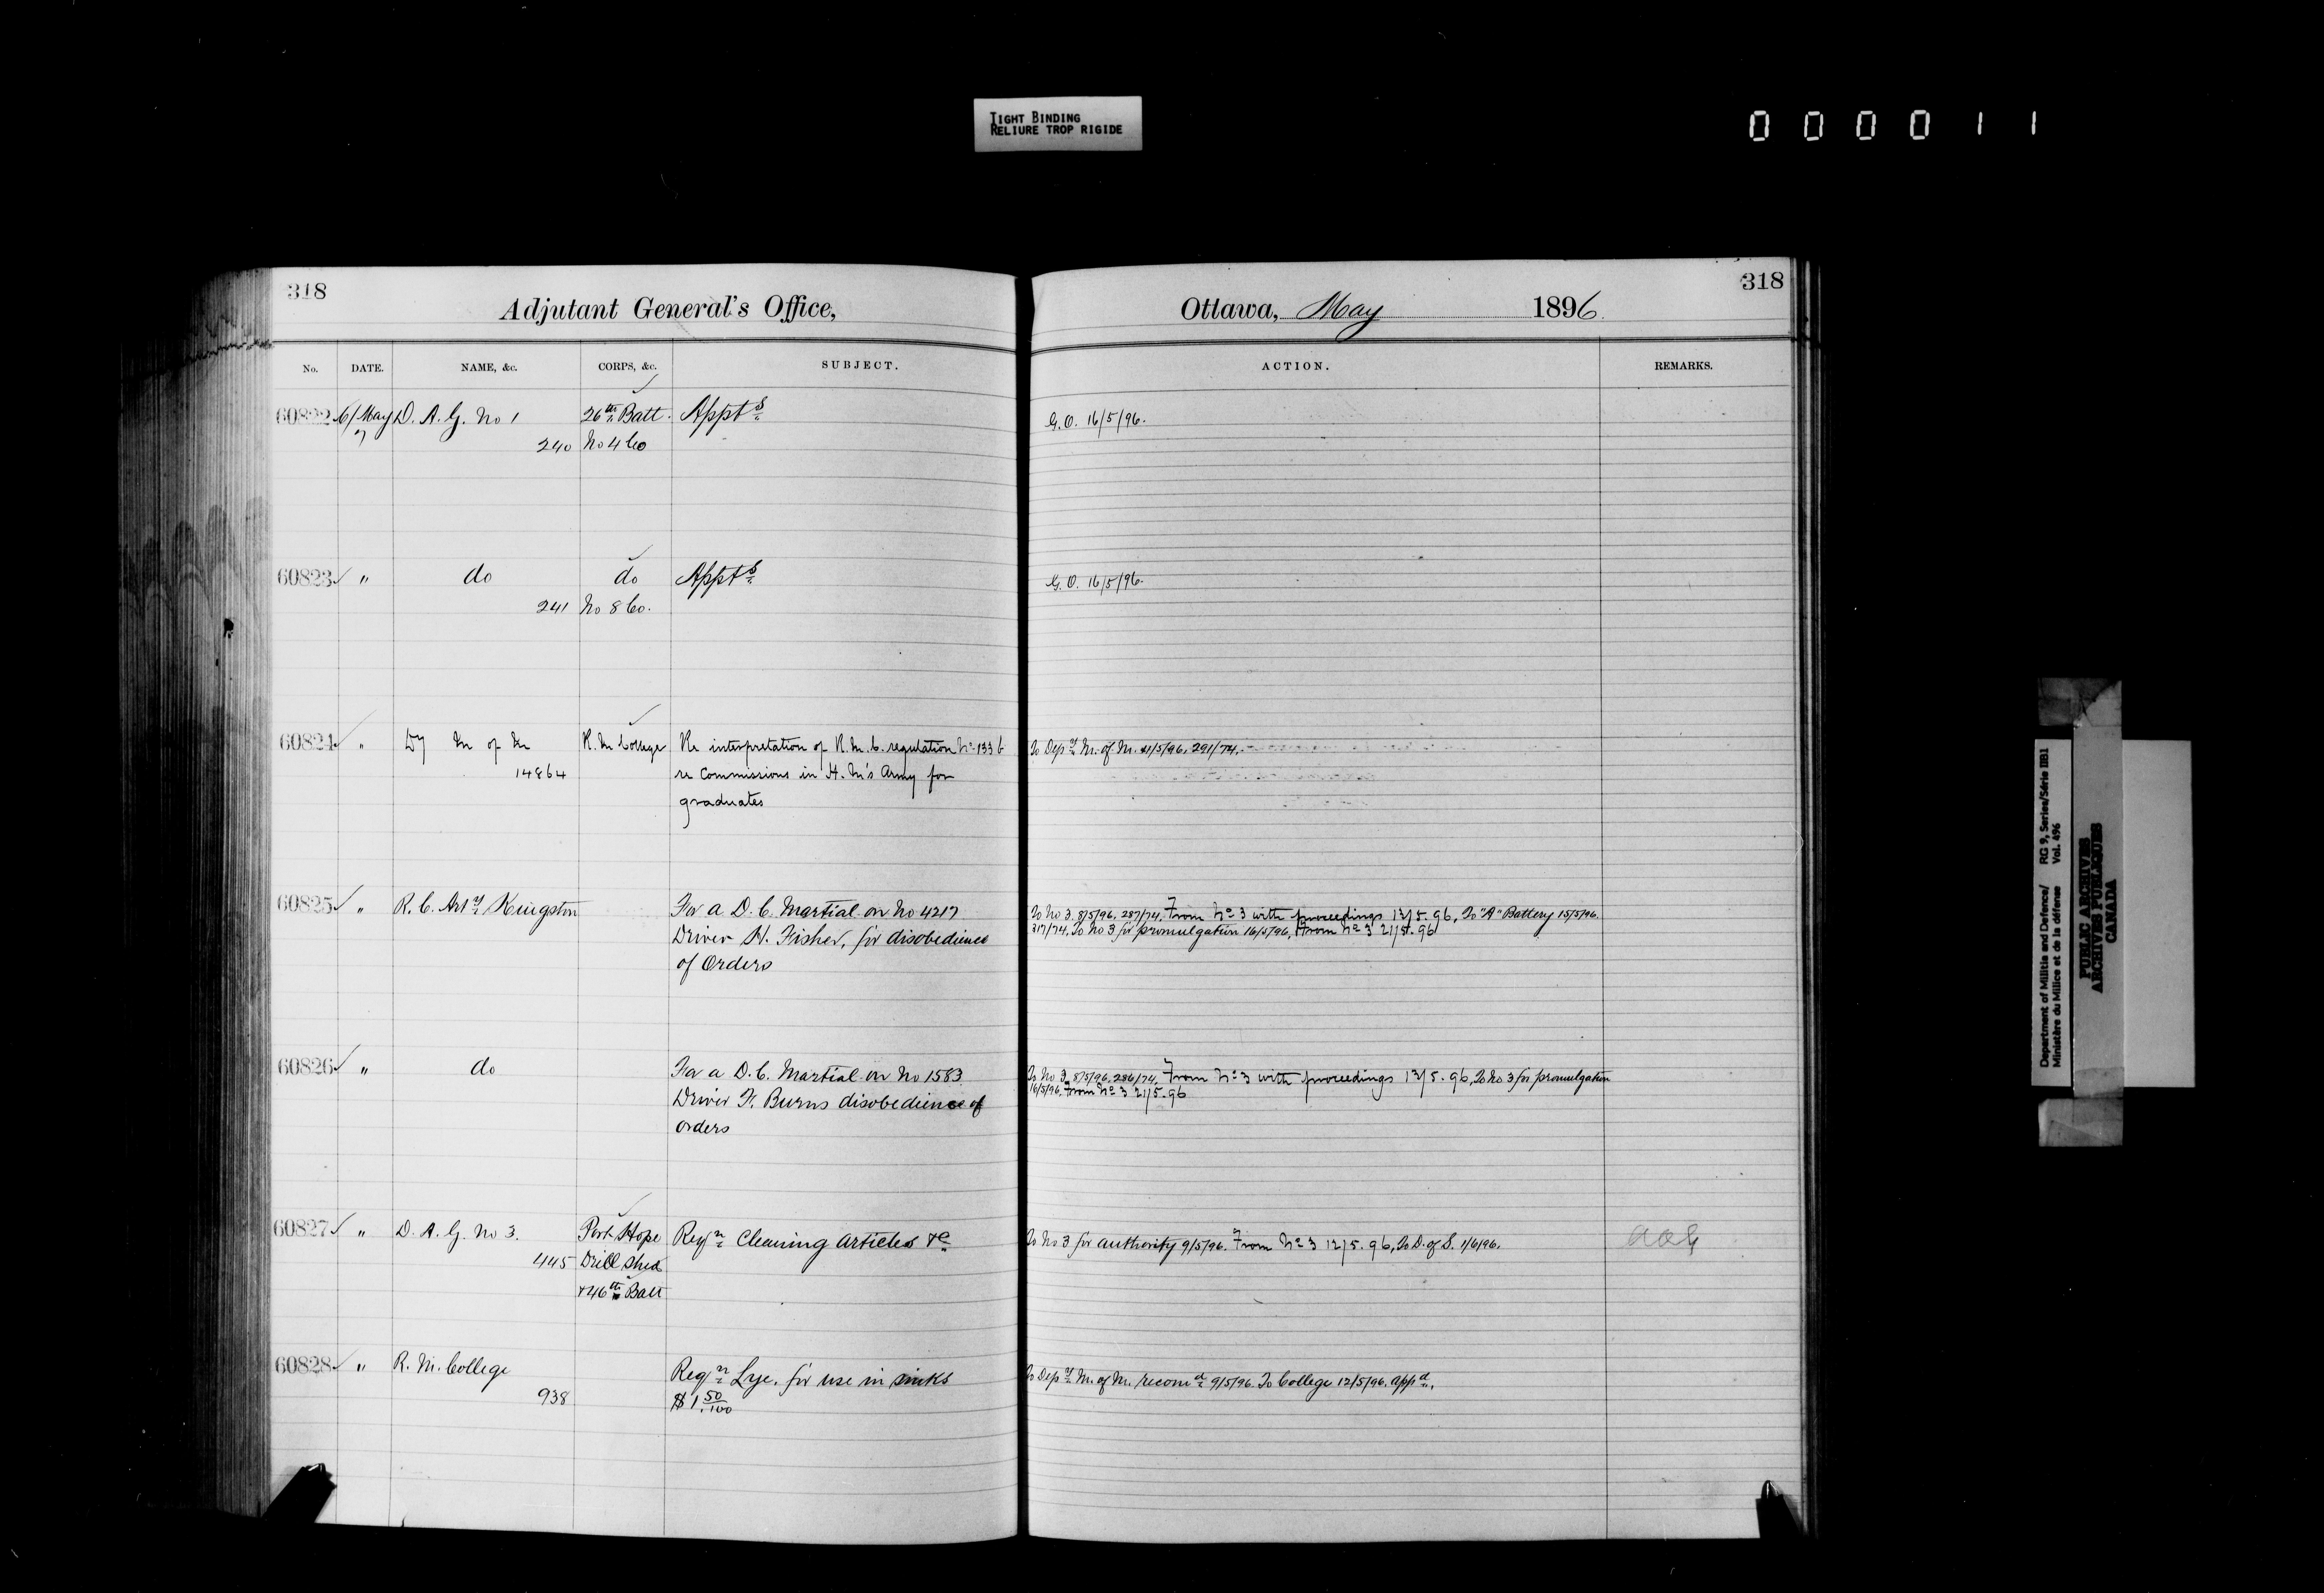 TIGHT BINDING
RELIURE TROP RIGIDE
000011
318
Adjutant General's Office,
Ottawa, May 1896
318
No. DATE. NAME, &c. CORPS, &c. SUBJECT. ACTION. REMARKS.
60822 6/May D. A. G. No 1 26th Batt. Appts G.O. 16/5/96.
7 240 No 4 Co
60823 " do do Appts G.O. 16/5/96.
241 No 8 Co.
60824 " Dy M of M R. M College Re interpretation of R.M.C. regulation No 133 b To Depy M. of M. 11/5/96. 291/74.
14864 re Commissions in H. M's Army for
graduates
60825 " R. C. Arty Kingston For a D. C. Martial on No 4217 To No 3. 8/5/96. 287/74. From No 3 with proceedings 13/5.96, To "A" Battery 15/5/96.
Driver H. Fisher, for disobedience 317/74. To No 3 for promulgation 16/5/96. From No 3 21/5.96
of Orders
60826 " do For a D. C. Martial on No 1583 To No 3. 8/5/96. 286/74. From No 3 with proceedings 13/5.96, To No 3 for promulgation
Driver F. Burns disobedience of 16/5/96. From No 3 21/5.96
orders
60827 " D. A. G. No 3. Port Hope Reqn Cleaning Articles &c To No 3 for authority 9/5/96. From No 3 12/5.96, To D. of S. 1/6/96.
445 Drill Shed
& 46th Batt
60828 " R. M. College Reqn Lye. for use in sinks To Depy M. of M. recomd 9/5/96. To College 12/5/96. appd.
938 $1 50/100
Department of Militia and Defence/ RG 9, Series/Série IIB1
Ministère du Milice et de la défense Vol. 496
PUBLIC ARCHIVES
ARCHIVES PUBLIQUES
CANADA